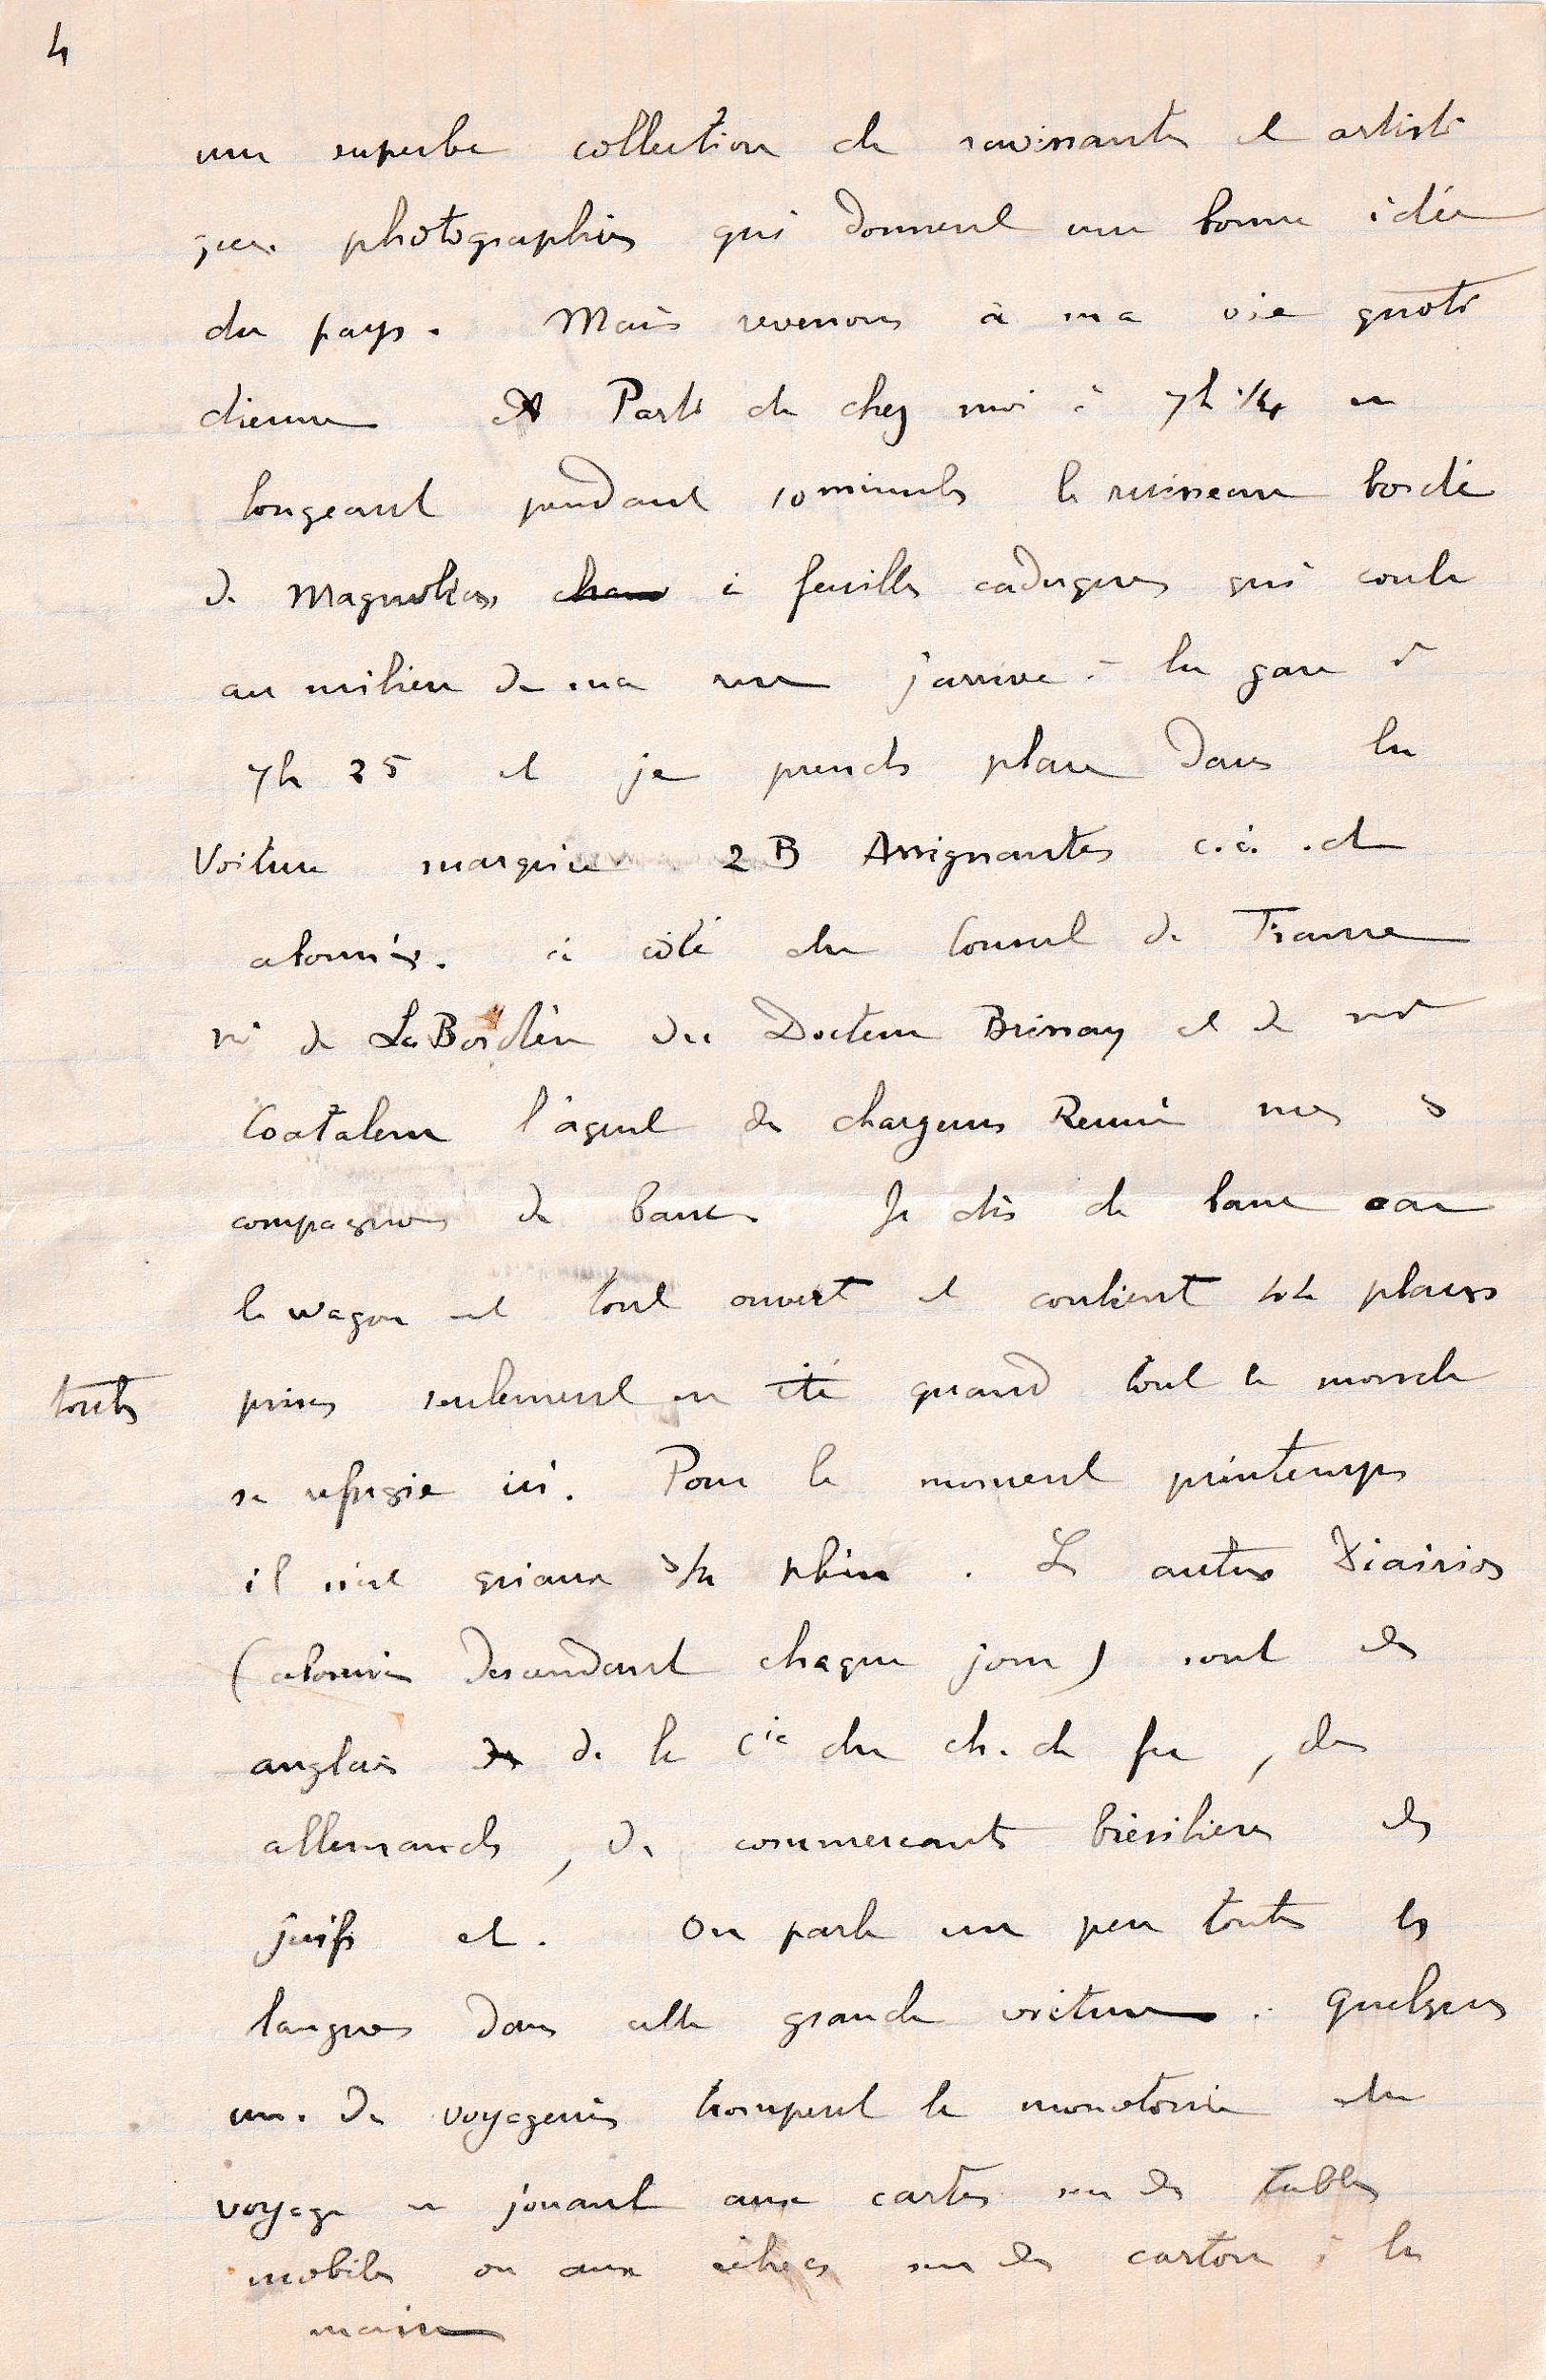 4
une superbe collection de ravissantes et artisti
ques photographies qui donnent une bonne idée
du pays. Mais revenons à ma vie quoti
dienne Parti de chez moi à 7h 1/4 en
longeant pendant 10 minutes le ruisseau bordé
de Magnolias à feuilles caduques qui coule
au milieu de ma rue j'arrive à la gare à
7h 25 et je prends place dans la
Voiture marquée 2 B Assignantes c.à.d
abonnés. à côté du Consul de France
Mr de La Bordère du Docteur Brissay et de Mr
Coatalem l'agent des chargeurs Réunis mes 3
compagnons de banc. Je dis de banc car
le wagon est tout ouvert et contient 44 places
toutes prises seulement en été quand tout le monde
se réfugie ici. Pour le moment printemps
il n'est qu'aux 3/4 plein. Les autres Diairios
(abonnés descendant chaque jour) sont des
anglais de la Cie du ch. de fer, des
allemands, des commerçants brésiliens des
juifs et. On parle un peu toutes les
langues dans cette grande voiture. Quelques
uns des voyageurs trompent la monotonie du
voyage en jouant aux cartes sur des tables
mobiles ou aux échecs sur des carton à la
main